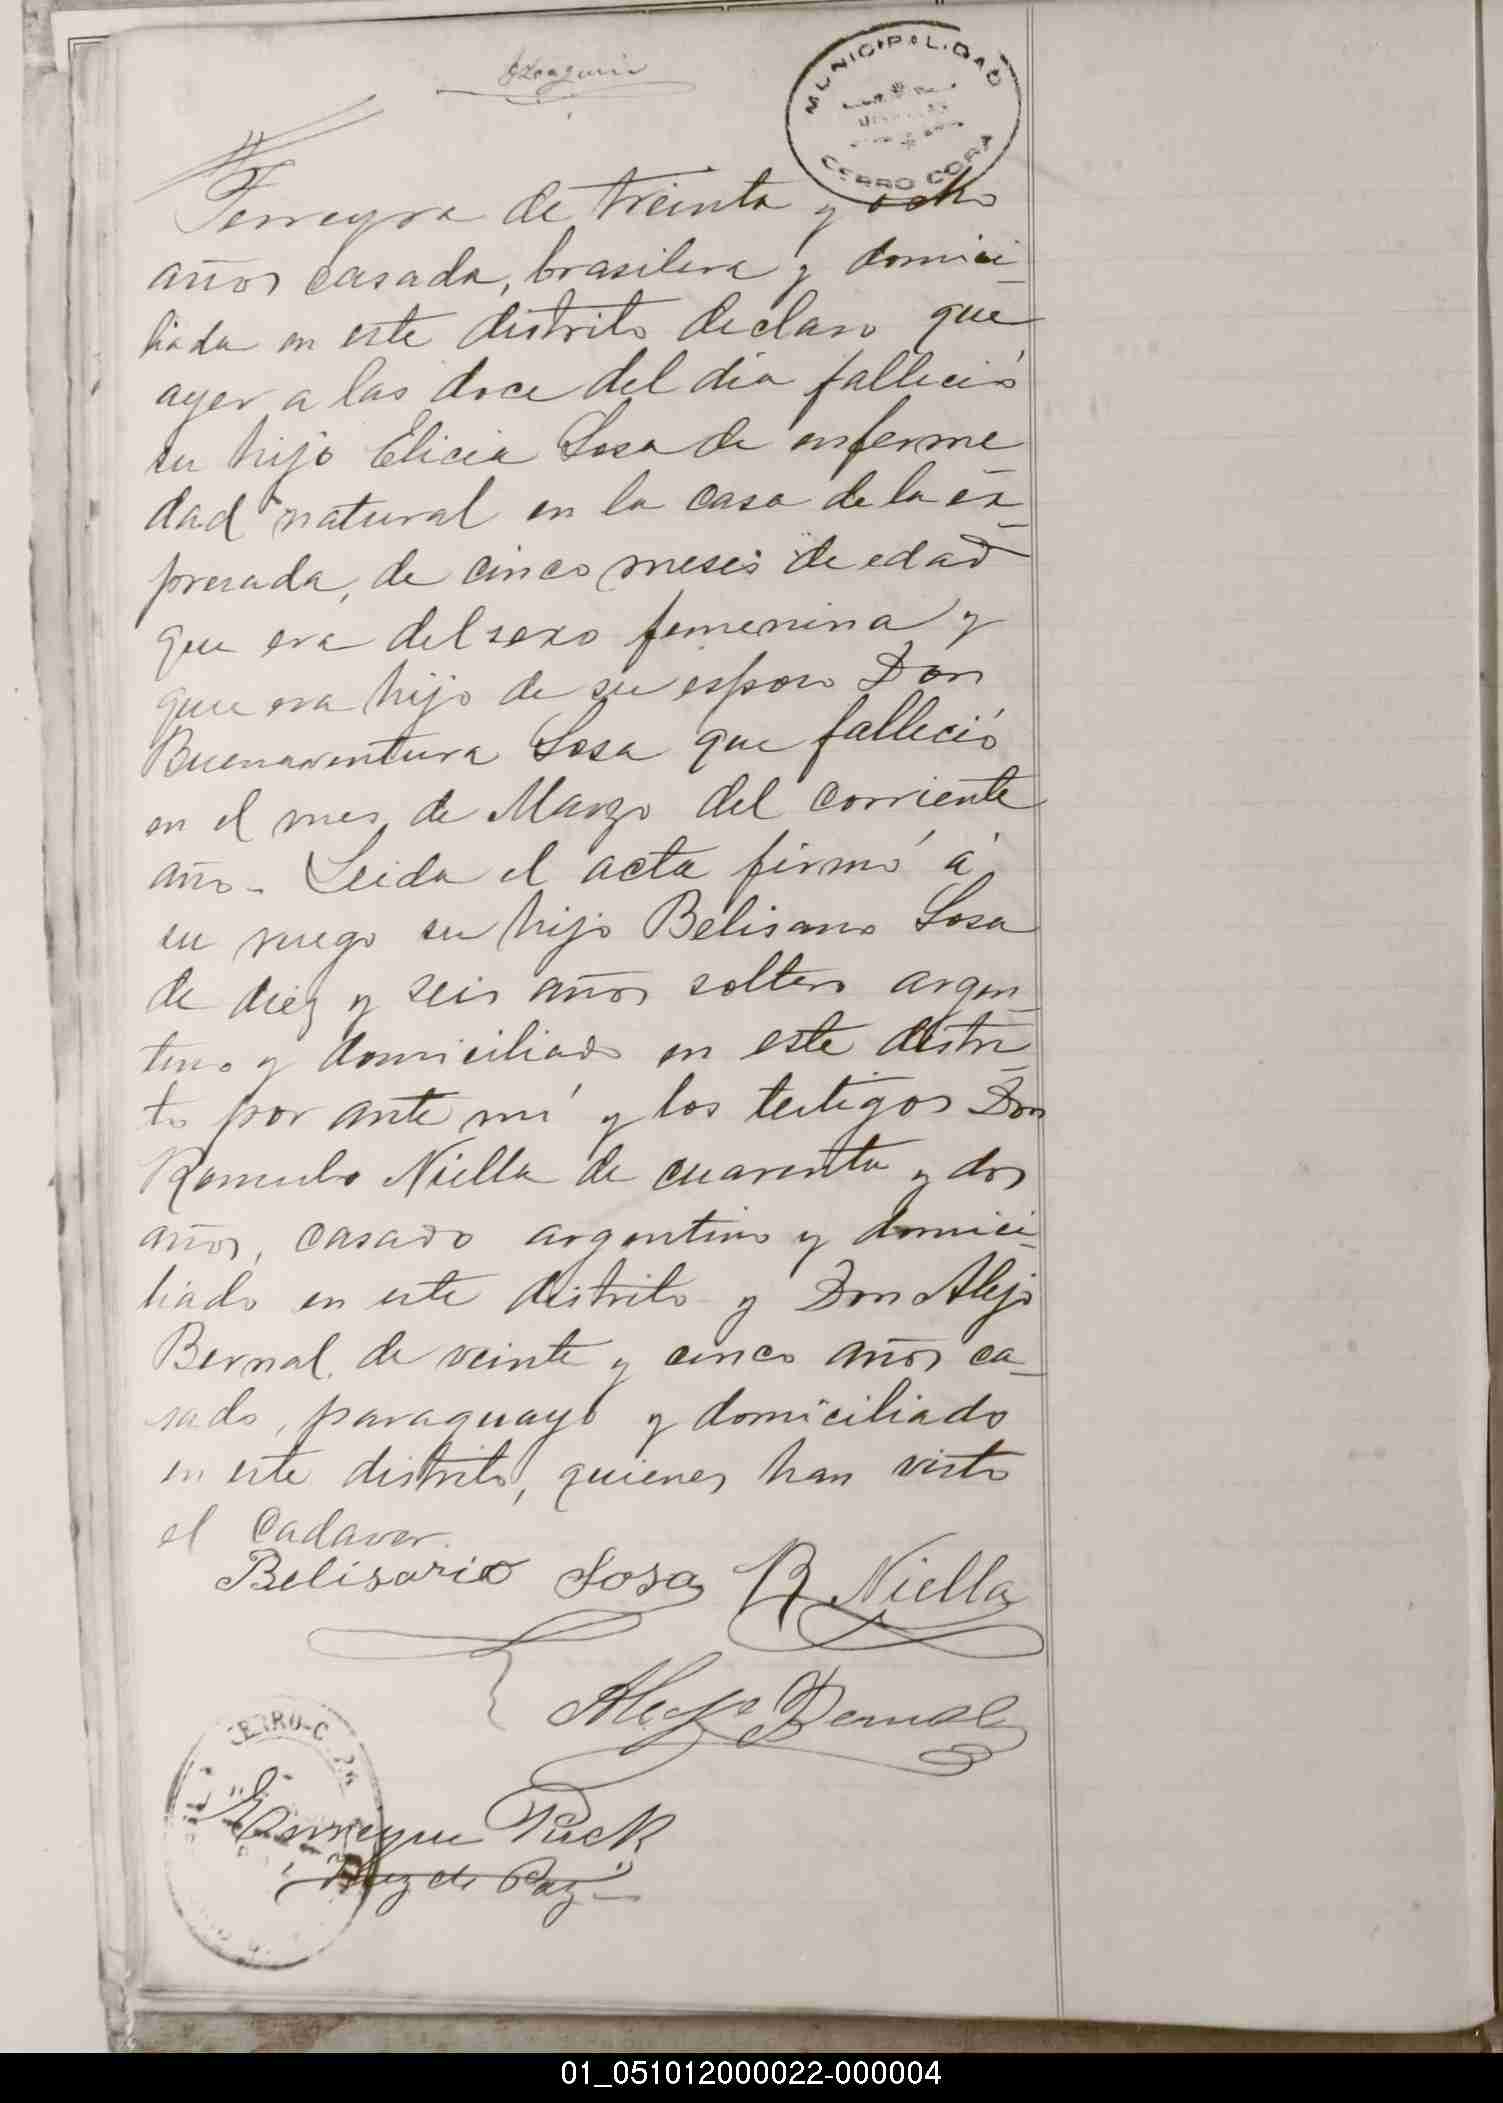 MUNICIPALIDAD
CERRO CORA
Ferreyra de treinta y ocho
años casada, brasilera y domici
liada en este distrito declaro que
ayer a las doce del dia falleció
su hijo Elicia Sosa de enferme
dad natural en la casa de la ex
presada, de cinco meses de edad
que era del sexo femenina y
que era hijo de su esposo Don
Buenaventura Sosa que falleció
en el mes de Marzo del corriente
año. Leida el acta firmó á
su ruego su hijo Belisario Sosa
de diez y seis años soltero argen
tino y domiciliado en este distri
to por ante mí y los testigos Don
Romulo Niella de cuarenta y dos
años, casado argentino y domici
liado en este distrito y Don Alejo
Bernal, de veinte y cinco años ca
sado, paraguayo y domiciliado
en este distrito, quienes han visto
el cadaver.
Belisario Sosa R Niella
Alejo Bernal
CERRO-CORA
Enrique Puck
Juez de Paz
01_051012000022-000004